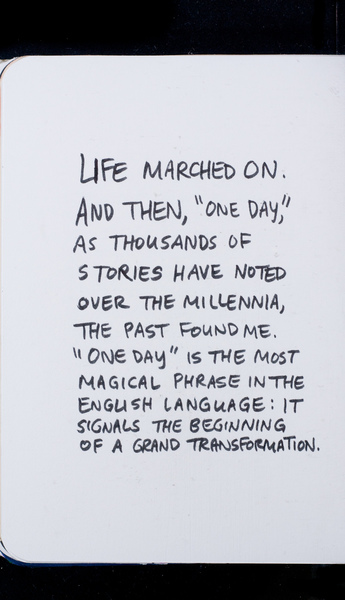 LIFE MARCHED ON.
AND THEN, "ONE DAY,"
AS THOUSANDS OF
STORIES HAVE NOTED
OVER THE MILLENNIA,
THE PAST FOUND ME.
"ONE DAY" IS THE MOST
MAGICAL PHRASE IN THE
ENGLISH LANGUAGE: IT
SIGNALS THE BEGINNING
OF A GRAND TRANSFORMATION.